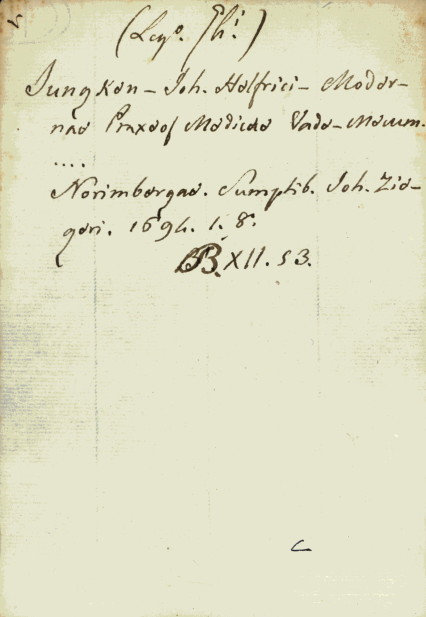 Jungken – Joh. Helfrici – Moder-
nae Praxeos Medicae Vade-Mecum.
....
Norimbergae. Sumptib. Joh. Zie-
geri. 1694. 1. 8.
BB. XII. 53.
C